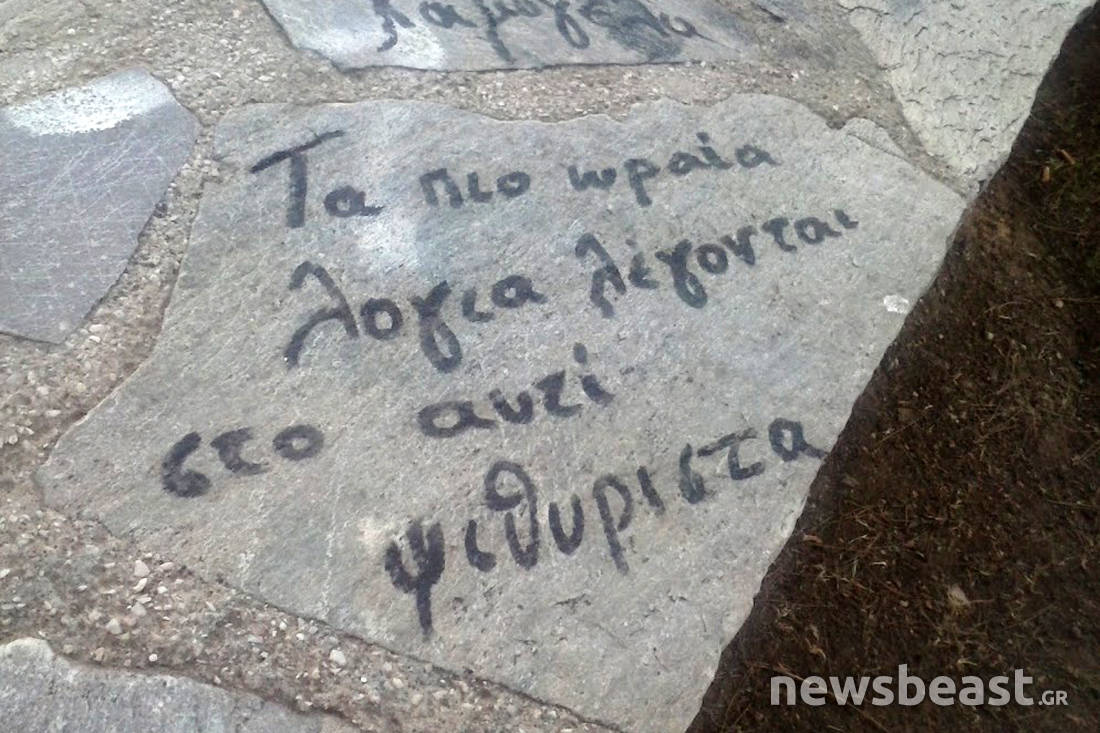 χαμόγελα
Τα πιο ωραία
λογια λέγονται
στο αυτί
ψιθυριστα
newsbeast.GR